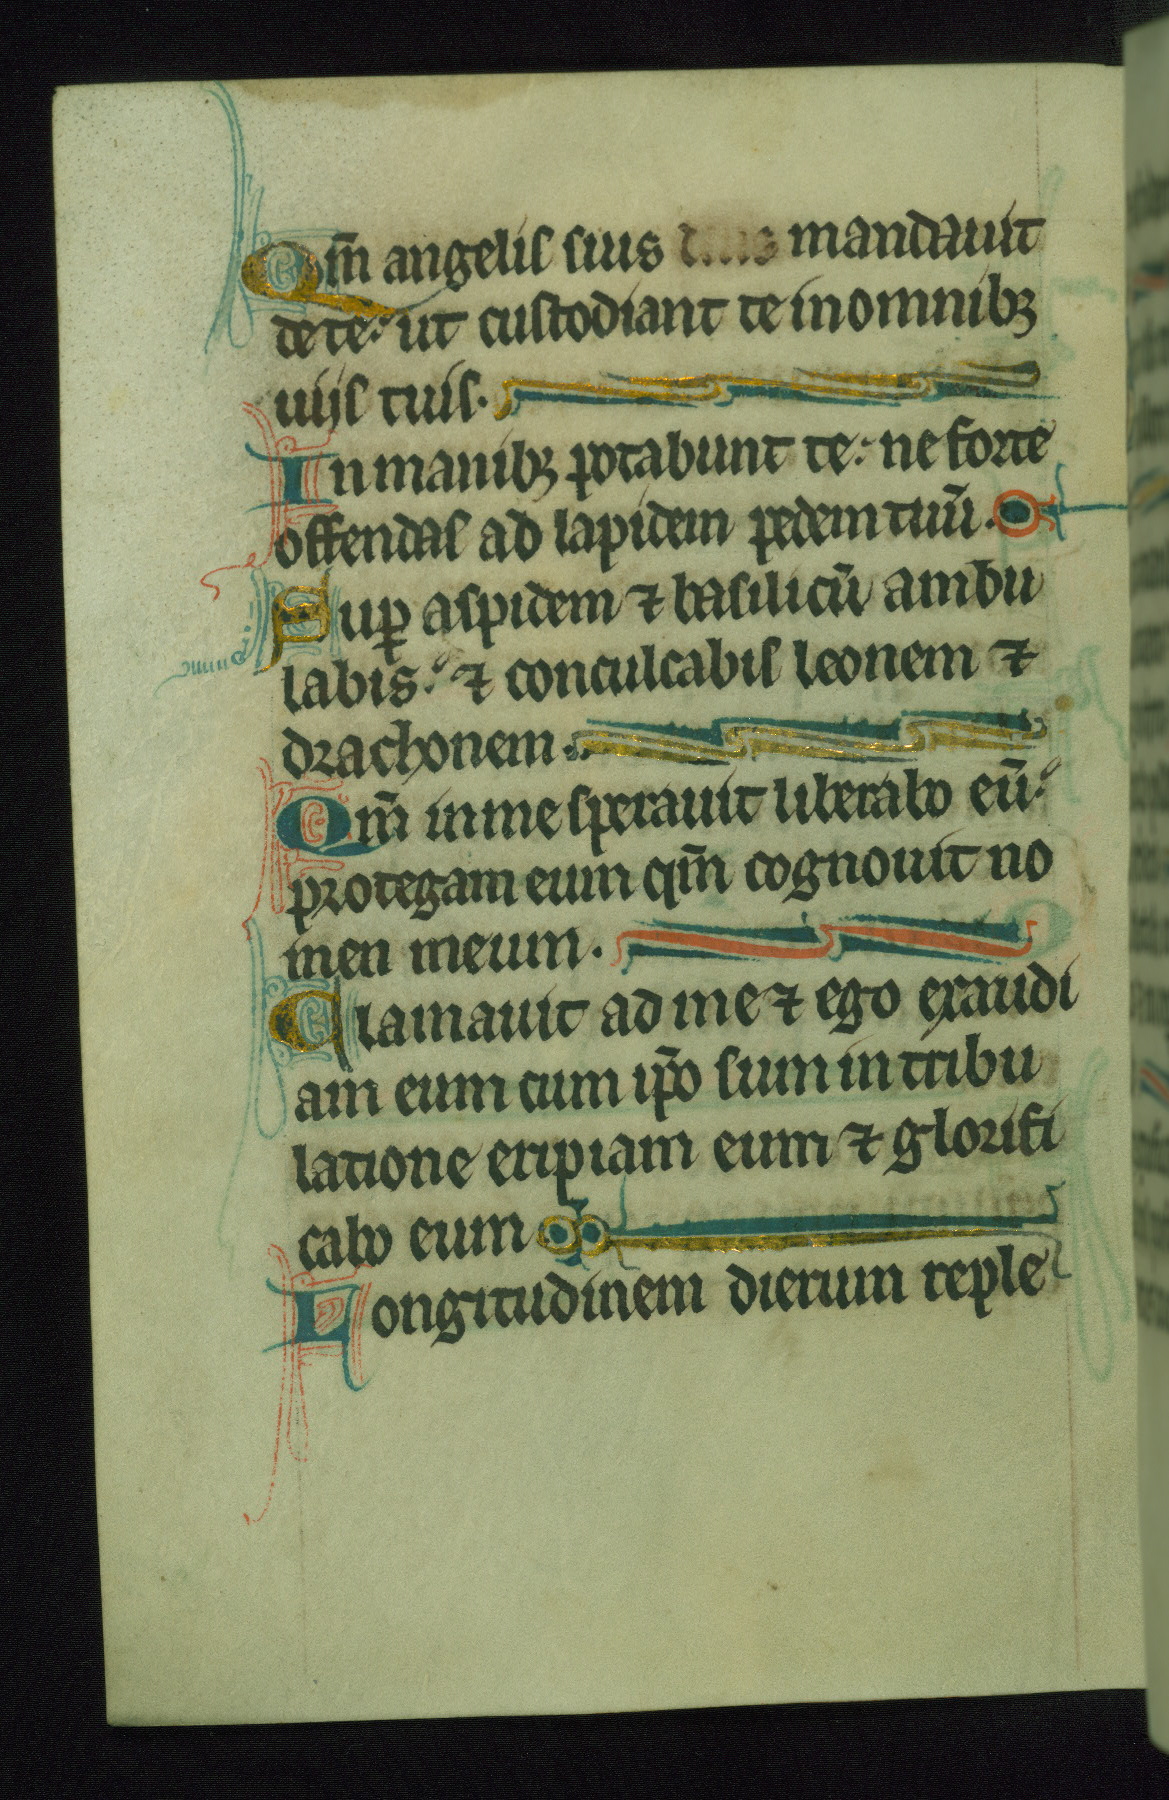 Qm̄ angelis suis mandauit
de te: ut custodiant te in omnibꝫ
uijs tuis.
In manibꝫ portabunt te: ne forte
offendas ad lapidem pedem tuū.
Suꝑ aspidem ⁊ basilicū ambu
labis: ⁊ conculcabis leonem ⁊
drachonem.
Qm̄ in me sperauit liberabo eū:
protegam eum qm̄ cognouit no
men meum.
Clamauit ad me ⁊ ego exaudi
am eum cum ip̄o sum in tribu
latione eripiam eum ⁊ glorifi
cabo eum
Longitudinem dierum reple